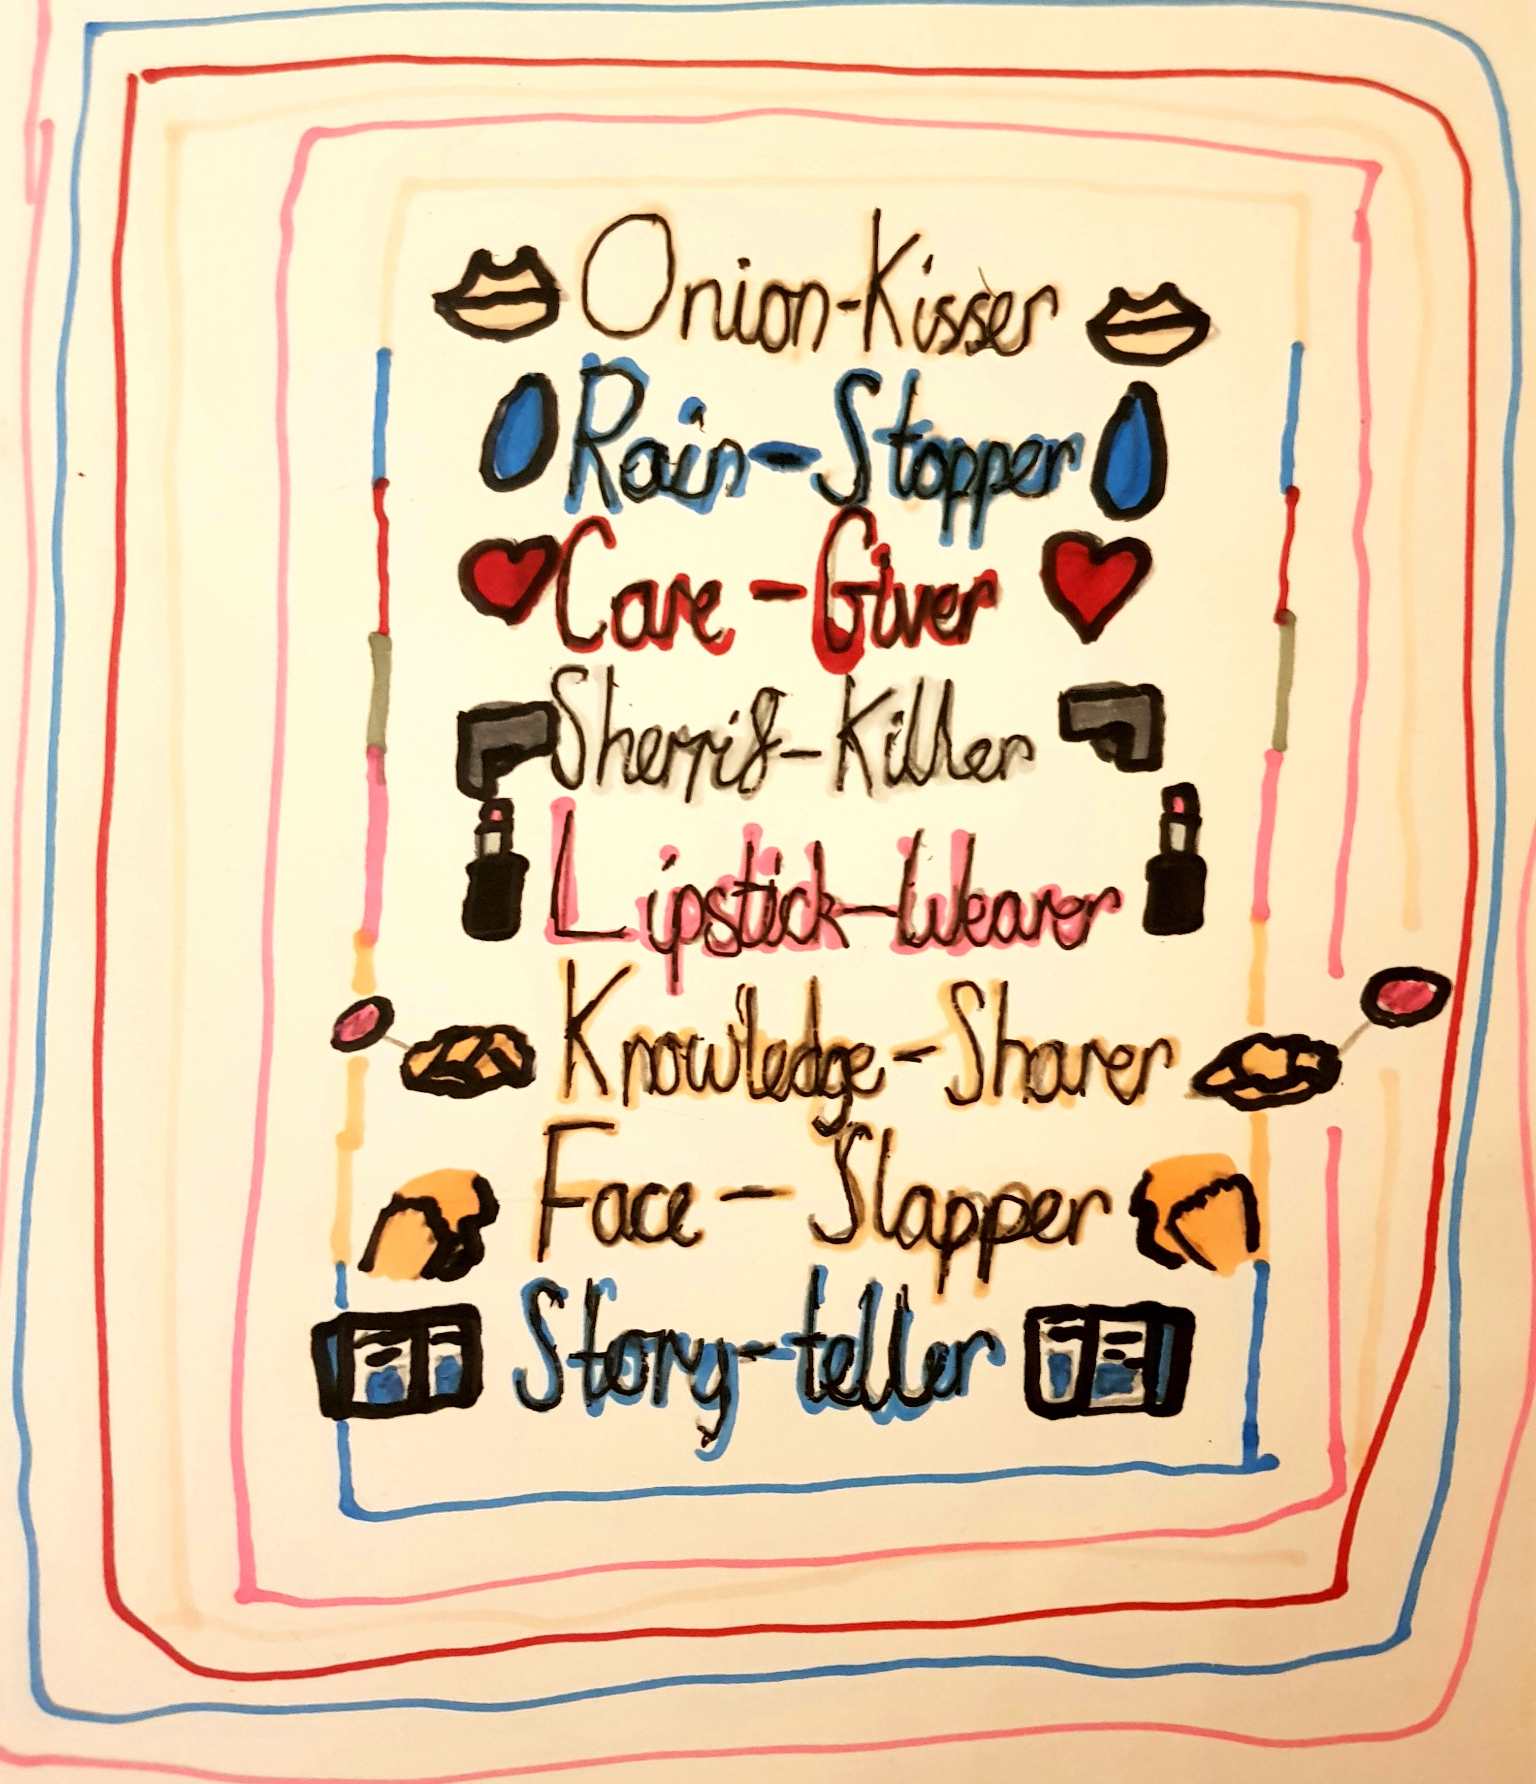 Onion-Kisser
Rain-Stopper
Care-Giver
Sherrif-Killer
Lipstick-Wearer
Knowledge-Sharer
Face-Slapper
Story-teller